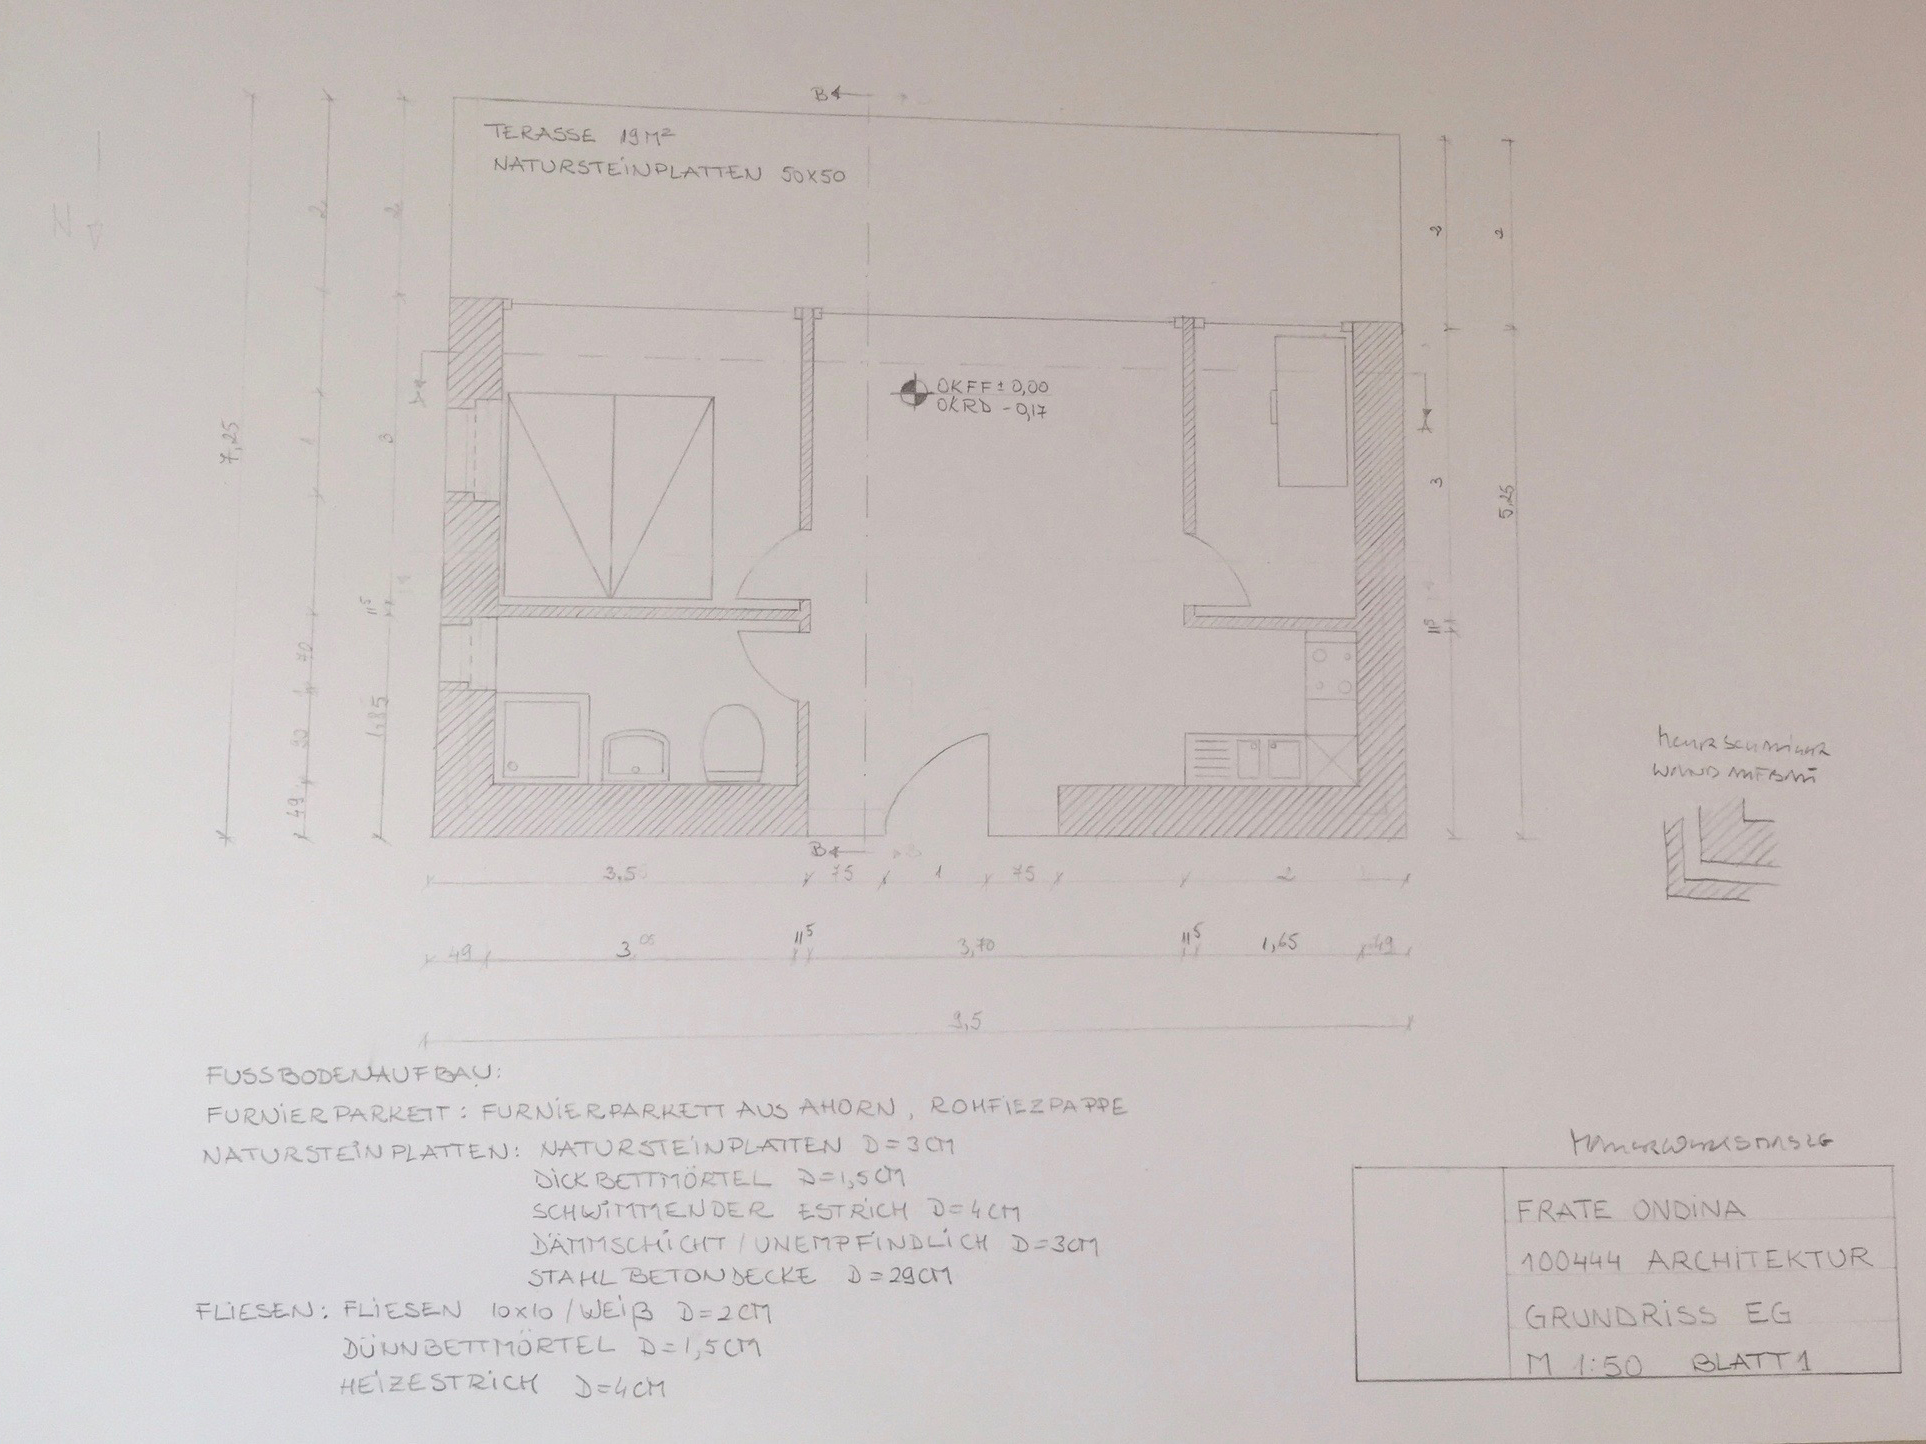 B
TERASSE 19M²
NATURSTEINPLATTEN 50X50
N
2
2
2
2
OKFF ± 0,00
OKRD - 0,17
7,25
1
3
3
5,25
11⁵
11⁵
70
1,85
90
49
B
3,5
75
1
75
2
49
3,05
11⁵
3,70
11⁵
1,65
49
9,5
MEHRSCHALIGER
WANDAUFBAU
FUSSBODENAUFBAU:
FURNIERPARKETT: FURNIERPARKETT AUS AHORN, ROHFIEZPAPPE
NATURSTEINPLATTEN: NATURSTEINPLATTEN D=3CM
DICKBETTMÖRTEL D=1,5CM
SCHWIMMENDER ESTRICH D=4CM
DÄMMSCHICHT/UNEMPFINDLICH D=3CM
STAHLBETONDECKE D=29CM
FLIESEN: FLIESEN 10X10/WEIß D=2CM
DÜNNBETTMÖRTEL D=1,5CM
HEIZESTRICH D=4CM
FRATE ONDINA
100444 ARCHITEKTUR
GRUNDRISS EG
M 1:50 BLATT 1